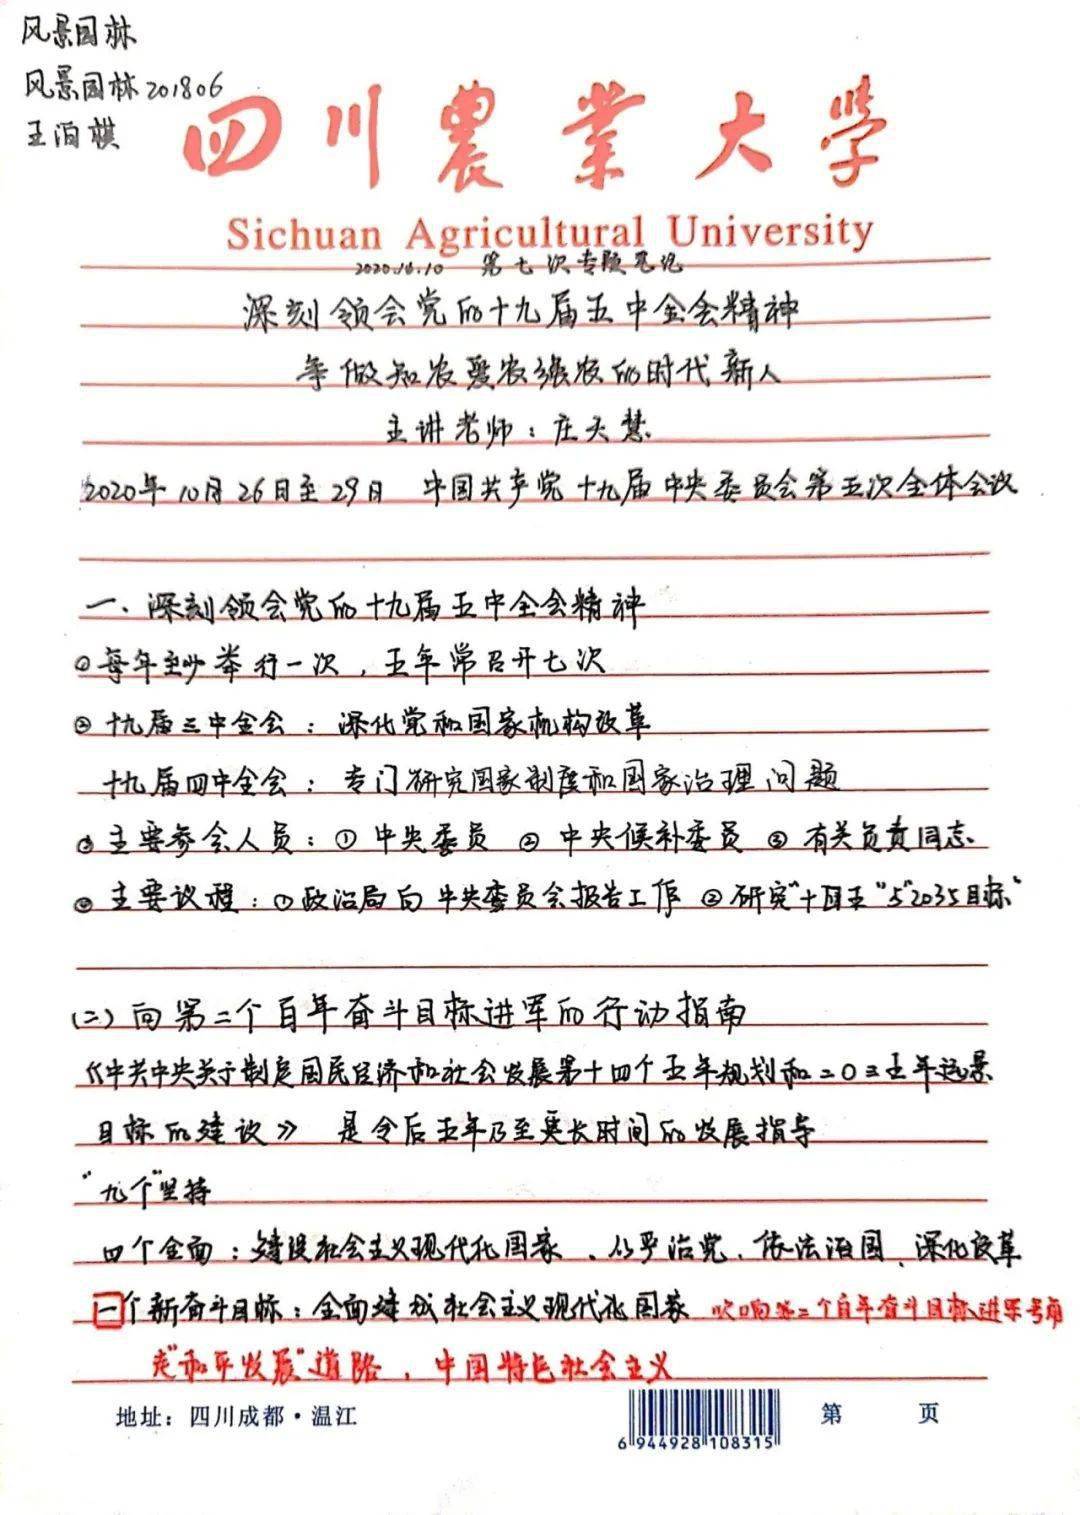 风景园林
风景园林201806
王泊棋
四川農業大學
Sichuan Agricultural University
第七次专题笔记
深刻领会党的十九届五中全会精神
争做知农爱农强农的时代新人
主讲老师：庄天慧
2020年10月26日至29日 中国共产党十九届中央委员会第五次全体会议
一、深刻领会党的十九届五中全会精神
①每年至少举行一次，五年常召开七次
② 十九届三中全会：深化党和国家机构改革
十九届四中全会：专门研究国家制度和国家治理问题
③ 主要参会人员：① 中央委员 ② 中央候补委员 ③ 有关负责同志
④ 主要议程：①政治局向中央委员会报告工作 ②研究“十四五”与“2035目标”
(二)向第二个百年奋斗目标进军的行动指南
《中共中央关于制定国民经济和社会发展第十四个五年规划和二〇三五年远景
目标的建议》 是今后五年乃至更长时间的发展指导
“九个”坚持
四个全面：建设社会主义现代化国家、从严治党、依法治国、深化改革
一个新奋斗目标：全面建成社会主义现代化国家 吹响第二个百年奋斗目标进军号角
走“和平发展”道路，中国特色社会主义
地址：四川成都·温江
6 944928 108315
第 页